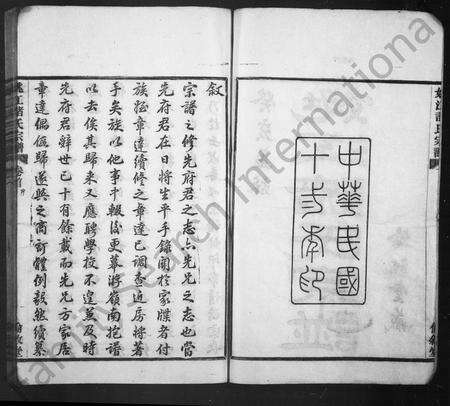 中華民國
十二年印
敘
宗譜之修先府君之志亦先兄之志也當
先府君在日將生平手錄關於家牒者付
族姪章達續修之章達已調查近房將著
手矣旋以他事中輟後更募游嶺南抱譜
以去俟其歸來又應聘學校不遑兼及時
先府君辭世已十有餘載而先兄方家居
章達偶倦歸遂與之商訂體例毅然續纂
姚江諸氏宗譜 卷首